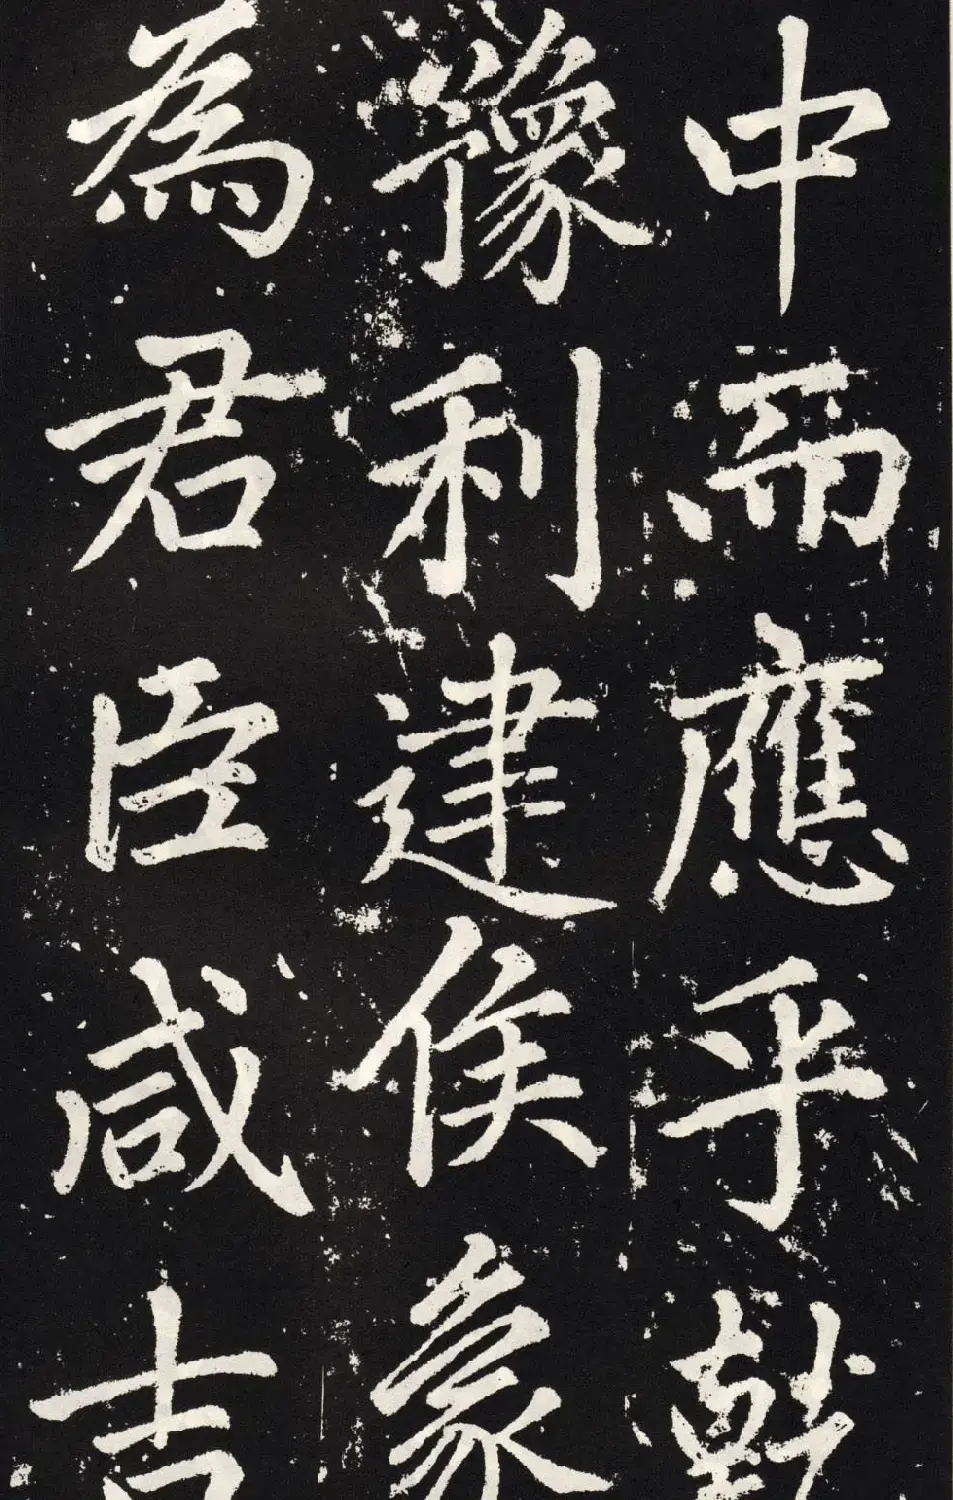 中而應乎
豫利建侯象
為君臣咸吉